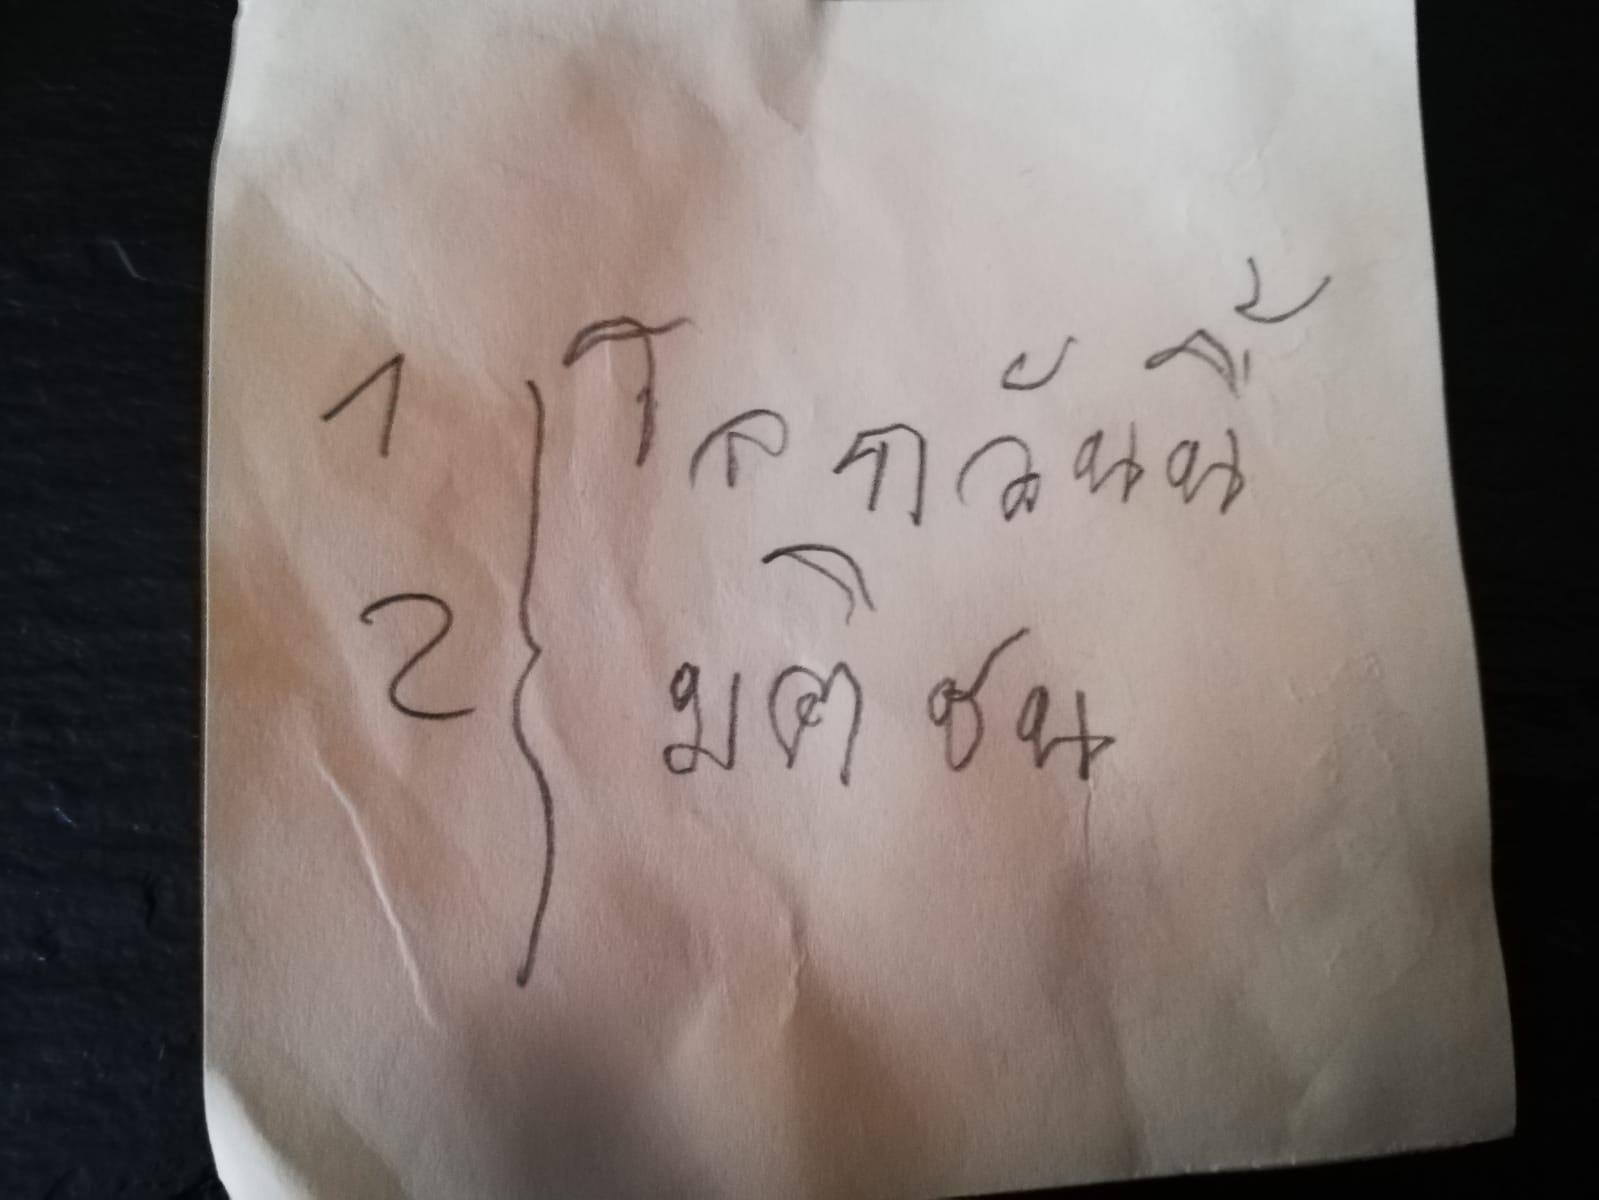 1 โลกวันนี้
2 มติชน